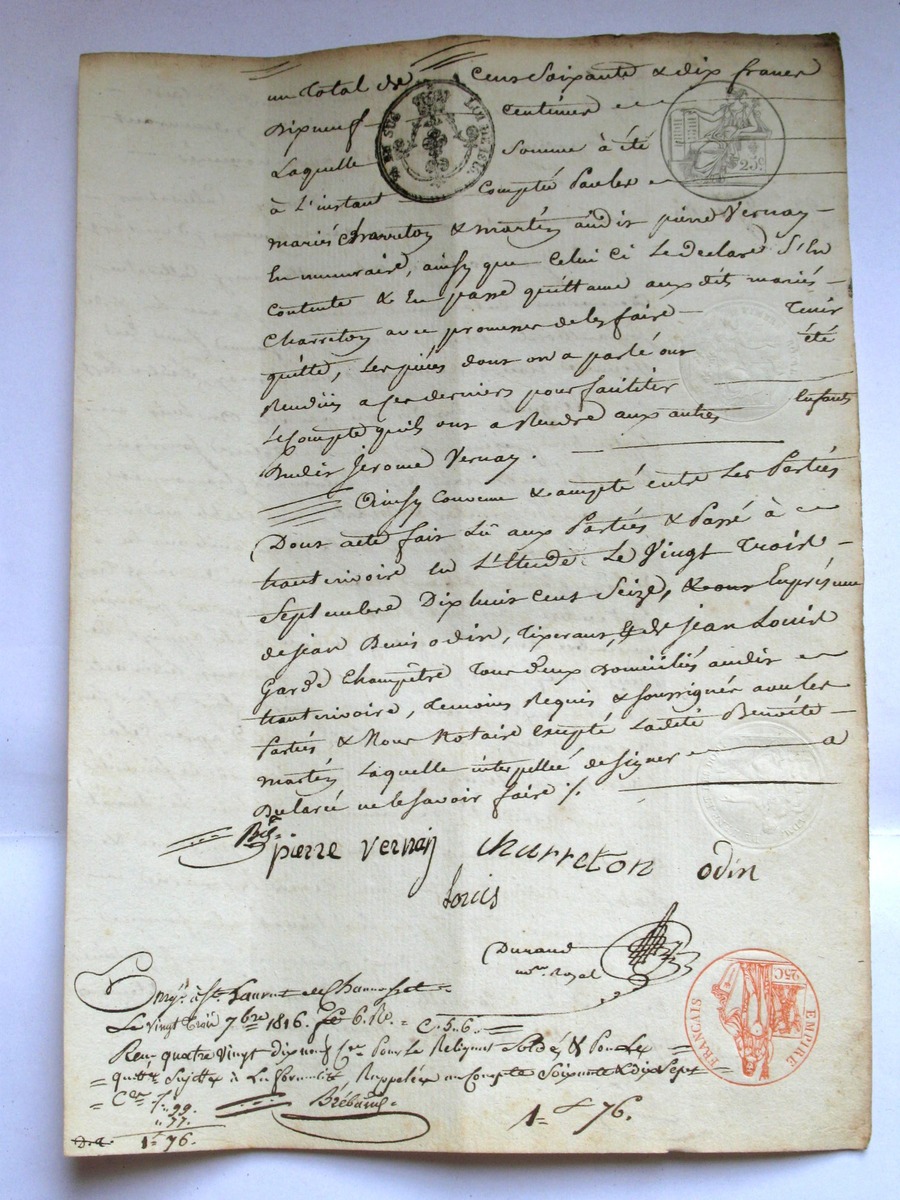 un Total de cent Soixante & dix francs
Dixneuf centimes
Laquelle somme à été
à L'instant comptée Par les
mariés Charreton & martin audit pierre Vernay
En numeraire, ainsy que Celui Ci Le declare S'En
Contente & En passe quittance aux dits mariés
Charreton avec promesse de les faire Tenir
quitte, Les pièces dont on a parlé ont été
Rendües a ces derniers pour faciliter
Le Compte quils ont a Rendre aux autres Enfants
Dudit Jerome Vernay.
Ainsy Convenu & accepté entre Les Parties
Dont acte fait Lû aux Parties & Passé à
hauterivoire En L'Etude Le Vingt Trois
Septembre Dix huit cent Seize, En présence
de jean Denis odin, Tixerant, & de jean Louis
Garde Champêtre Tous deux domiciliés audit
hauterivoire, temoins Requis & soussignés avec les
Parties & Nous Notaire excepté Ladite Benoite
martin Laquelle interpellée de signer a
Declaré ne le savoir faire ./.
pierre vernay charreton odin
Louis
Durand
nore Royal
Enrgé à St Laurent de Chamousset
Le vingt Trois 7bre 1816. fo 6. Ro. C. 5. 6.
Reçu quatre Vingt dixneuf Cmes Pour Le Reliquat & Pour Les
quittces Sujettes à La formalité Soixante & dix Sept
99
77
1 " 76.
1 f 76.
LOI DE 1816
25c
EMPIRE FRANCAIS
25C